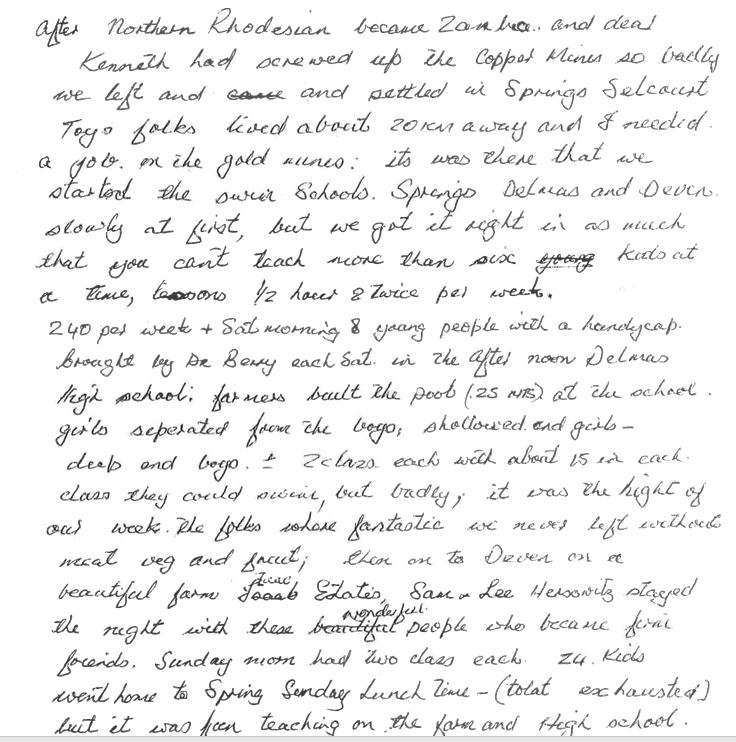 After Northern Rhodesian became Zambia.. and dear
Kenneth had screwed up the Copper Mines so badly
we left and came and settled in Springs Selcourt
Toyo folks lived about 20 km away and I needed.
a job. on the gold mines: its was there that we
started the swim Schools. Springs Delmas and Deven.
slowly at first, but we got it right in as much
that you can't teach more than six young kids at
a time, lessons 1/2 hour & twice per week.
240 per week + Sat morning 8 young people with a handycap.
brought by Dr Berry each Sat. in the after noon Delmas
High school: farmers built the pool (.25 mts) at the school.
girls seperated from the boyo; shallowed end girls -
deep end boyo. ± 2 class each with about 15 in each.
class they could swim, but badly; it was the hight of
our week. The folks where fantastic we never left without
meat veg and fruit; then on to Deven on a
beautiful farm Estates, Sam & Lee Hersowitz stayed
the night with these beautiful wonderful people who became firm
friends. Sunday morn had two class each. 24. Kids
went home to Spring Sunday Lunch time - (tolat exhausted)
but it was fun teaching on the farm and High school.